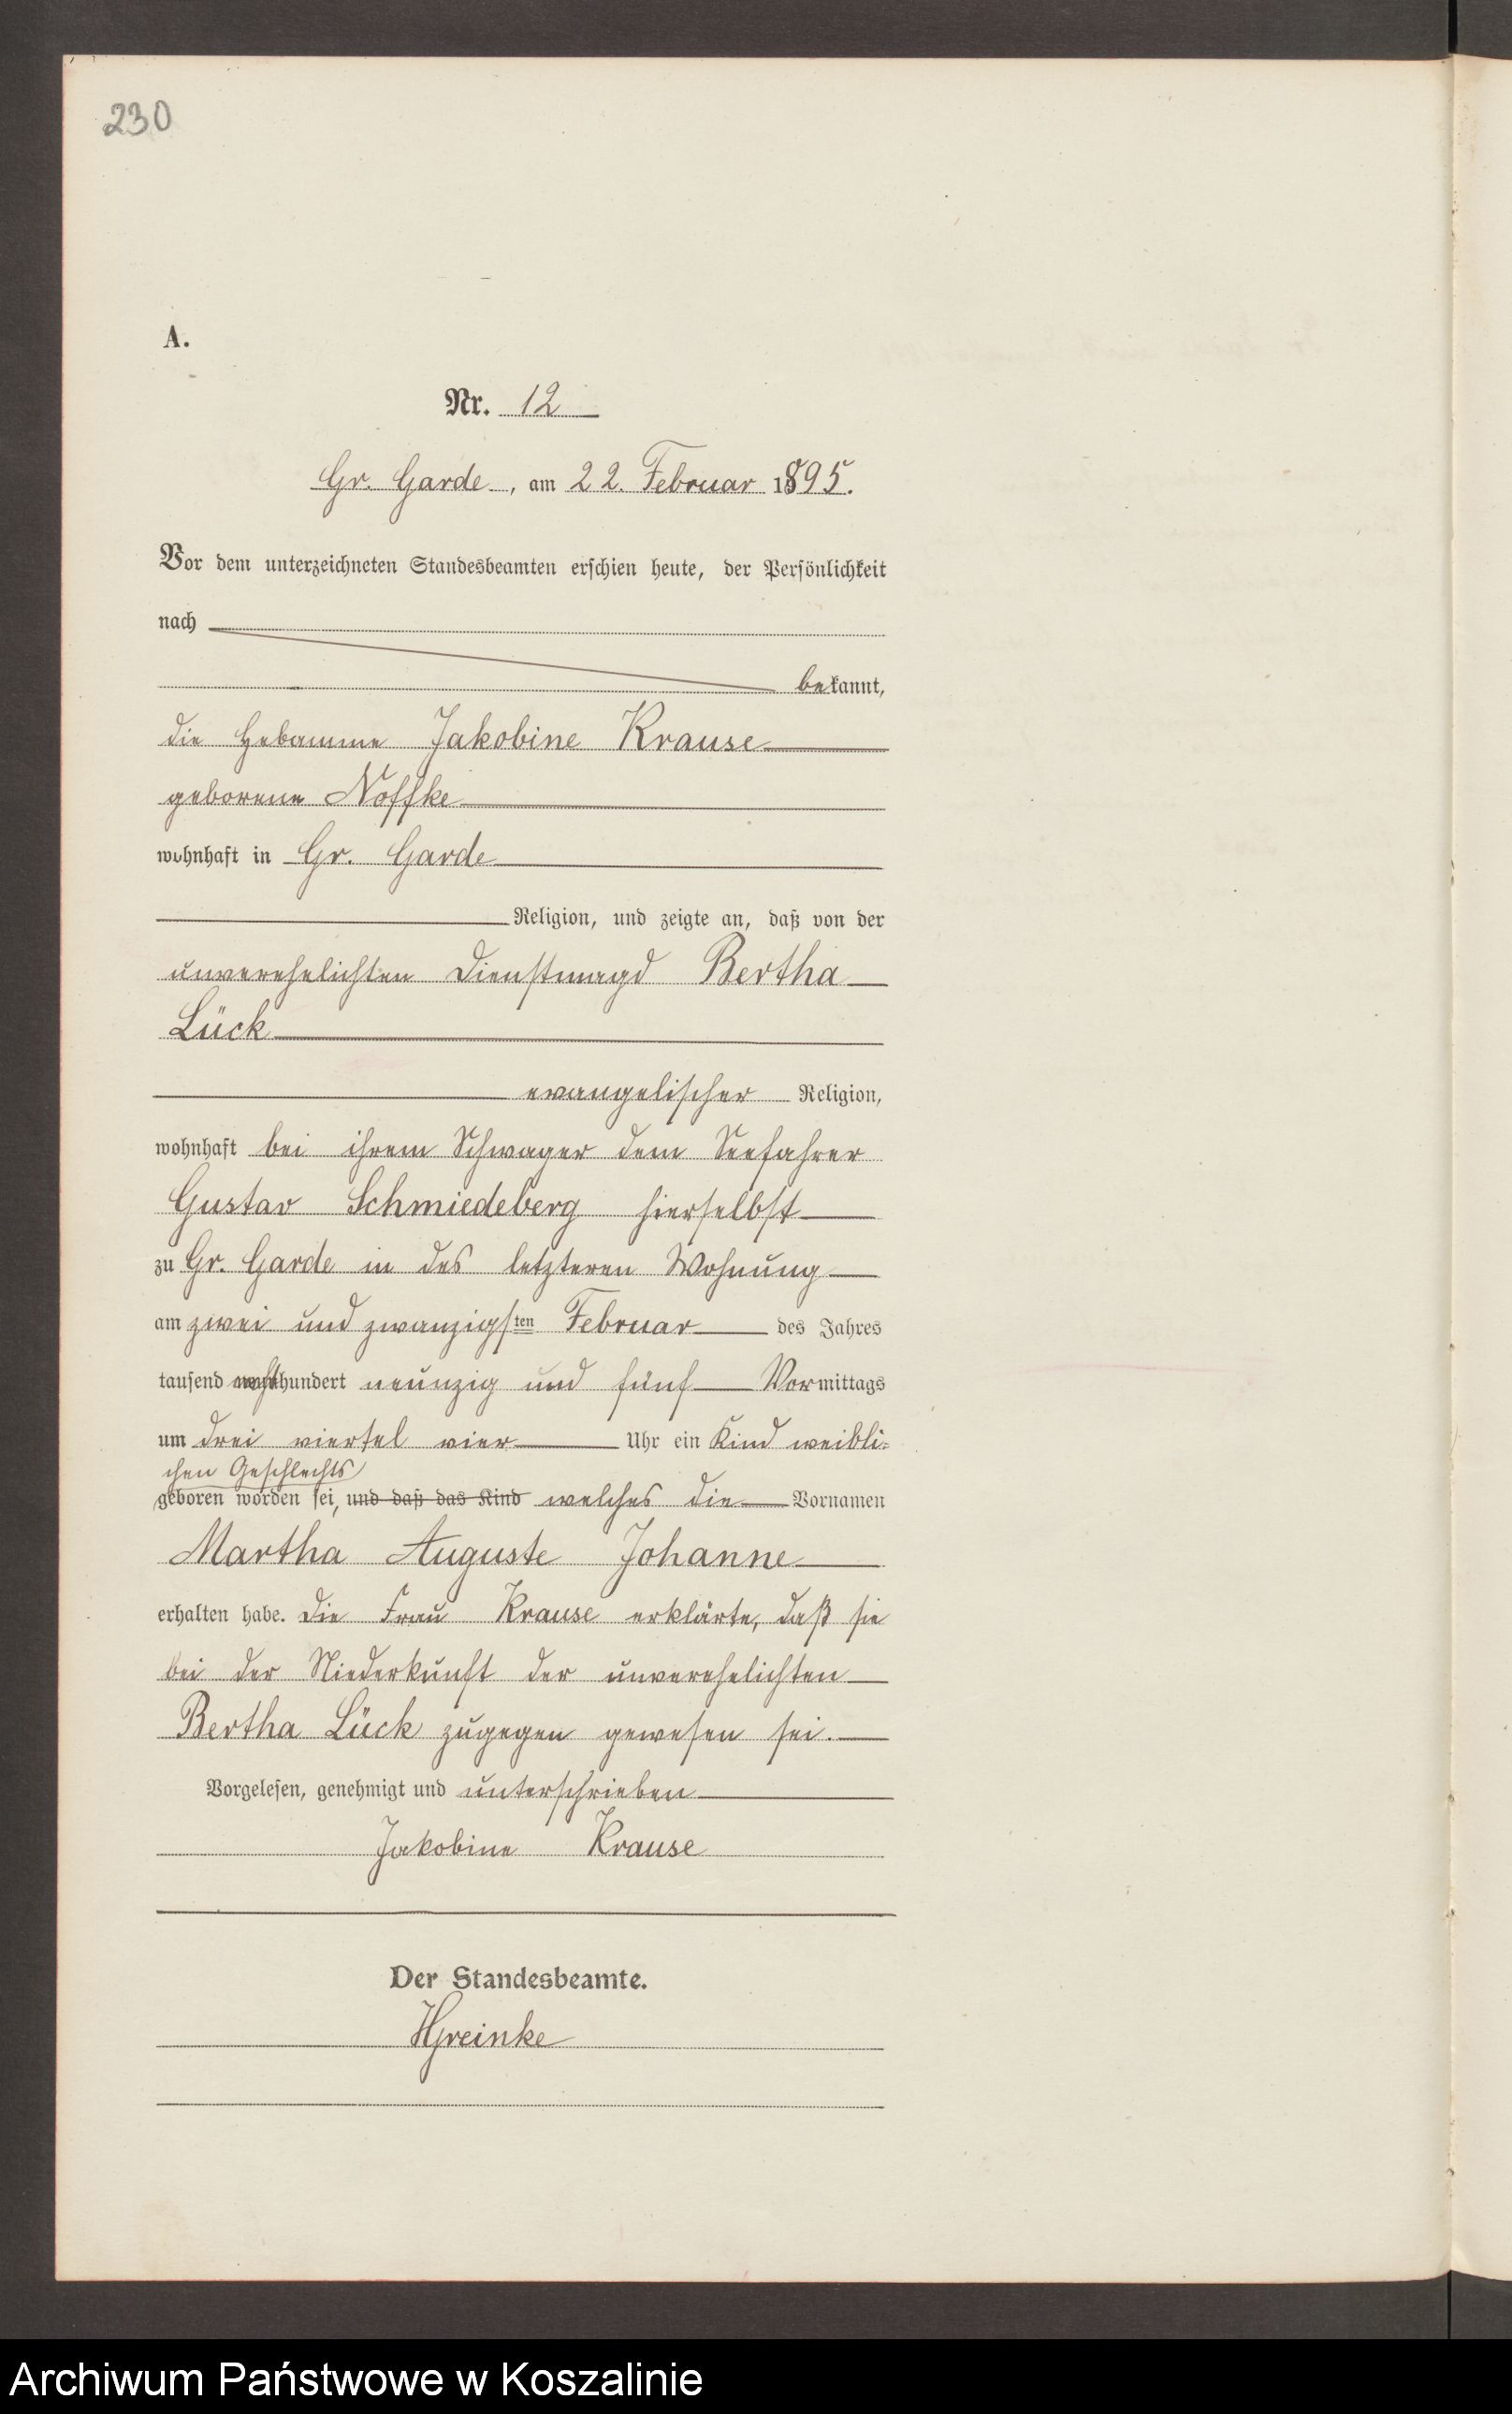 230
A.
Nr. 12
Gr. Garde, am 22. Februar 1895.
Vor dem unterzeichneten Standesbeamten erschien heute, der Persönlichkeit
nach
bekannt,
die Hebamme Jakobine Krause
geborene Noffke
wohnhaft in Gr. Garde
Religion, und zeigte an, daß von der
unverehelichten Dienstmagd Bertha
Lück
evangelischer Religion,
wohnhaft bei ihrem Schwager dem Seefahrer
Gustav Schmiedeberg hierselbst
zu Gr. Garde in des letzteren Wohnung
am zwei und zwanzigsten Februar des Jahres
tausend achthundert neunzig und fünf Vormittags
um drei viertel vier Uhr ein Kind weibli-
chen Geschlechts
geboren worden sei, und daß das Kind welches die Vornamen
Martha Auguste Johanne
erhalten habe. Die Frau Krause erklärte, daß sie
bei der Niederkunft der unverehelichten
Bertha Lück zugegen gewesen sei.
Vorgelesen, genehmigt und unterschrieben
Jakobine Krause
Der Standesbeamte.
HGreinke
Archiwum Państwowe w Koszalinie